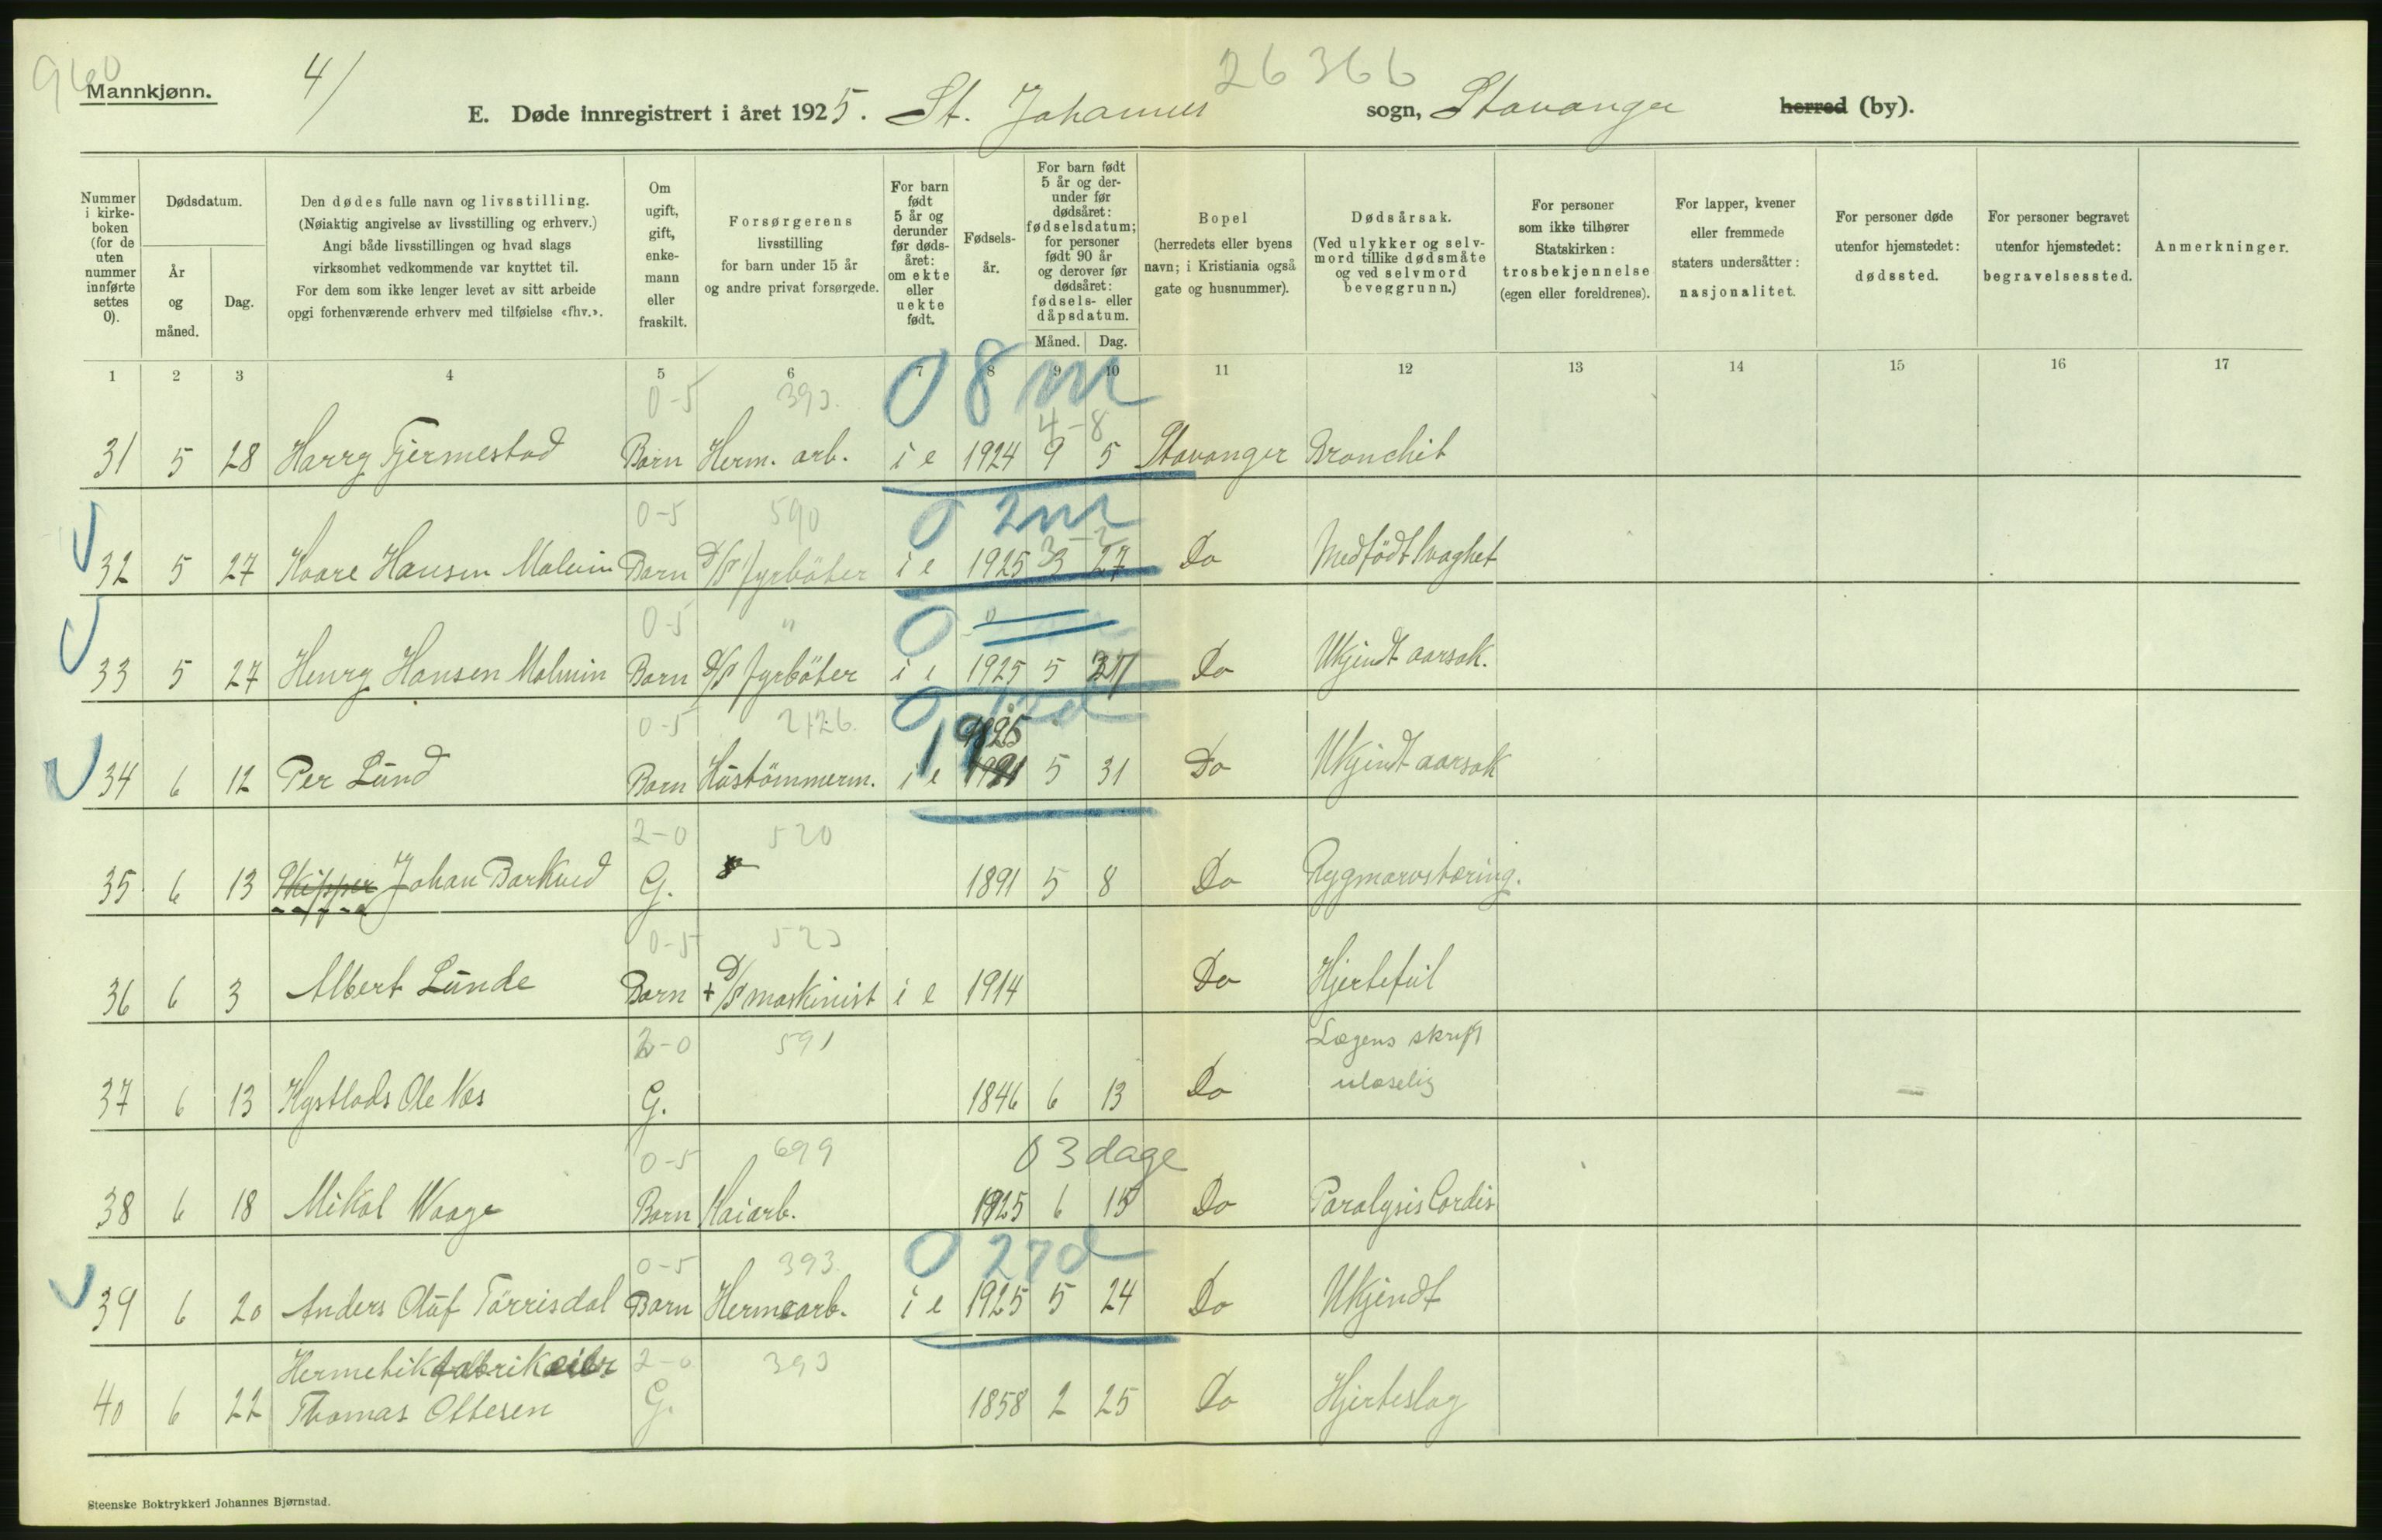 Mannkjønn.
4/
26366
E. Døde innregistrert i året 1925. St. Johannes sogn, Stavanger herred (by).
Nummer i kirke-boken (for de uten nummer innførte settes 0).
Dødsdatum.
År og måned.
Dag.
Den dødes fulle navn og livsstilling.
(Nøiaktig angivelse av livsstilling og erhverv.)
Angi både livsstillingen og hvad slags
virksomhet vedkommende var knyttet til.
For dem som ikke lenger levet av sitt arbeide
opgi forhenværende erhverv med tilføielse «fhv.».
Om ugift, gift, enke-mann eller fraskilt.
Forsørgerens
livsstilling
for barn under 15 år
og andre privat forsørgede.
For barn født 5 år og derunder før døds-året: om ekte eller uekte født.
Fødsels-år.
For barn født 5 år og der-under før dødsåret: fødselsdatum; for personer født 90 år og derover før dødsåret: fødsels- eller dåpsdatum.
Måned. Dag.
Bopel
(herredets eller byens
navn; i Kristiania også
gate og husnummer).
Dødsårsak.
(Ved ulykker og selv-
mord tillike dødsmåte
og ved selvmord
beveggrunn.)
For personer
som ikke tilhører
Statskirken:
trosbekjennelse
(egen eller foreldrenes).
For lapper, kvener
eller fremmede
staters undersåtter:
nasjonalitet.
For personer døde
utenfor hjemstedet:
dødssted.
For personer begravet
utenfor hjemstedet:
begravelsessted.
Anmerkninger.
1 2 3 4 5 6 7 8 9 10 11 12 13 14 15 16 17
0-5 393. 0 8 m
4-8
31 5 28 Harry Tjermestad Barn Herm. arb. i e 1924 9 5 Stavanger Bronchit
0-5 590 0 2m
32 5 27 Kaare Hansen Malmin Barn D/S fyrbøter i e 1925 3 27 Do Medfødt svaghet
0-5 " 0
33 5 27 Henry Hansen Malmin Barn D/S fyrbøter i e 1925 5 27 Do Ukjendt aarsak.
0-5 2126. 0
1925
34 6 12 Per Lund Barn Hustømmerm. i e 5 31 Do Ukjendt aarsak
2-0 520
35 6 13 Skipper Johan Barkved G. 1891 5 8 Do Rygmarvstæring.
0-5 523
36 6 3 Albert Lunde Barn + D/S maskinist i e 1914 Do Hjertefeil
2-0 591 Lægens skrift
37 6 13 Kystlods Ole Næs G. 1846 6 13 Do ulæselig
0-5 699 0 3 dage
38 6 18 Mikal Waage Barn Haiarb. 1925 6 15 Do Paralysis Cordis
0-5 393. 0 27d
39 6 20 Anders Oluf Tørrisdal Barn Hermarb. i e 1925 5 24 Do Ukjendt
Hermetikfabrikeier 2-0 393
40 6 22 Thomas Ottesen G. 1858 2 25 Do Hjerteslag
Steenske Boktrykkeri Johannes Bjørnstad.